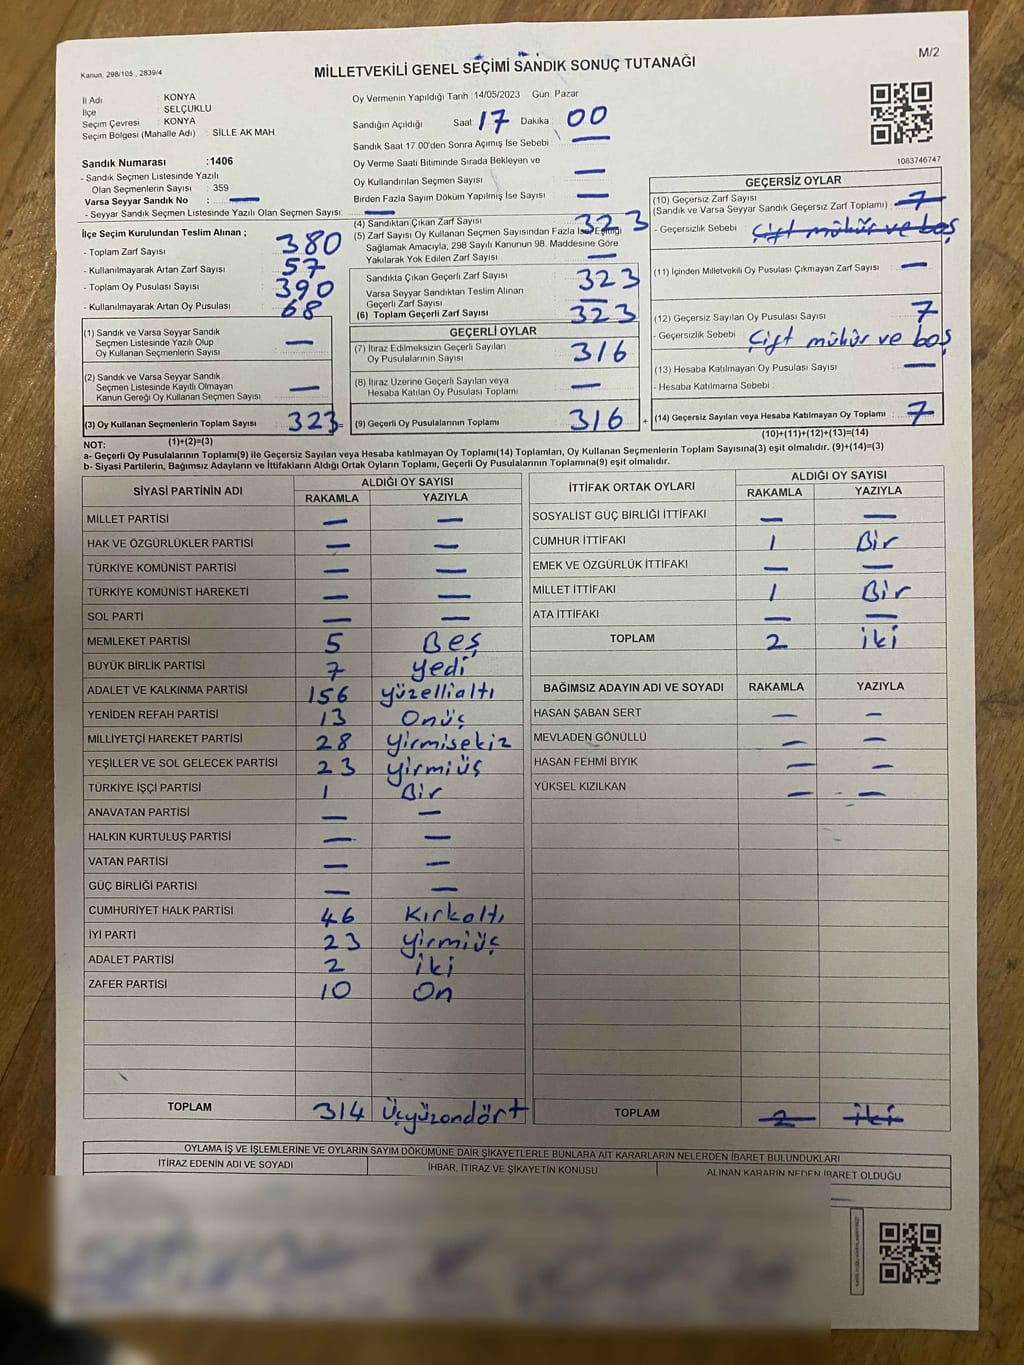 Kanun, 298/105 , 2839/4
M/2
MİLLETVEKİLİ GENEL SEÇİMİ SANDIK SONUÇ TUTANAĞI
İl Adı : KONYA
İlçe : SELÇUKLU
Seçim Çevresi : KONYA
Seçim Bölgesi (Mahalle Adı) : SİLLE AK MAH
Sandık Numarası :1406
- Sandık Seçmen Listesinde Yazılı
Olan Seçmenlerin Sayısı : 359
Varsa Seyyar Sandık No : —
- Seyyar Sandık Seçmen Listesinde Yazılı Olan Seçmen Sayısı: —
Oy Vermenin Yapıldığı Tarih :14/05/2023 Gün: Pazar
Sandığın Açıldığı Saat: 17 Dakika : 00
Sandık Saat 17.00'den Sonra Açılmış İse Sebebi : —
Oy Verme Saati Bitiminde Sırada Bekleyen ve
Oy Kullandırılan Seçmen Sayısı : —
Birden Fazla Sayım Döküm Yapılmış İse Sayısı : —
1083746747
İlçe Seçim Kurulundan Teslim Alınan ;
- Toplam Zarf Sayısı : 380
- Kullanılmayarak Artan Zarf Sayısı : 57
- Toplam Oy Pusulası Sayısı : 390
- Kullanılmayarak Artan Oy Pusulası : 68
(1) Sandık ve Varsa Seyyar Sandık
Seçmen Listesinde Yazılı Olup
Oy Kullanan Seçmenlerin Sayısı : —
(2) Sandık ve Varsa Seyyar Sandık
Seçmen Listesinde Kayıtlı Olmayan
Kanun Gereği Oy Kullanan Seçmen Sayısı : —
(3) Oy Kullanan Seçmenlerin Toplam Sayısı : 323 =
(1)+(2)=(3)
(4) Sandıktan Çıkan Zarf Sayısı : 323
(5) Zarf Sayısı Oy Kullanan Seçmen Sayısından Fazla İse, Eşitliği
Sağlamak Amacıyla, 298 Sayılı Kanunun 98. Maddesine Göre
Yakılarak Yok Edilen Zarf Sayısı : —
Sandıkta Çıkan Geçerli Zarf Sayısı : 323
Varsa Seyyar Sandıktan Teslim Alınan
Geçerli Zarf Sayısı : —
(6) Toplam Geçerli Zarf Sayısı : 323
GEÇERLİ OYLAR
(7) İtiraz Edilmeksizin Geçerli Sayılan
Oy Pusulalarının Sayısı : 316
(8) İtiraz Üzerine Geçerli Sayılan veya
Hesaba Katılan Oy Pusulası Toplamı : —
(9) Geçerli Oy Pusulalarının Toplamı : 316 +
GEÇERSİZ OYLAR
(10) Geçersiz Zarf Sayısı
(Sandık ve Varsa Seyyar Sandık Geçersiz Zarf Toplamı) : 7
- Geçersizlik Sebebi : Çift mühür ve boş
(11) İçinden Milletvekili Oy Pusulası Çıkmayan Zarf Sayısı : —
(12) Geçersiz Sayılan Oy Pusulası Sayısı : 7
- Geçersizlik Sebebi : Çift mühür ve boş
(13) Hesaba Katılmayan Oy Pusulası Sayısı : —
- Hesaba Katılmama Sebebi :
(14) Geçersiz Sayılan veya Hesaba Katılmayan Oy Toplamı : 7
(10)+(11)+(12)+(13)=(14)
NOT:
a- Geçerli Oy Pusulalarının Toplamı(9) ile Geçersiz Sayılan veya Hesaba katılmayan Oy Toplamı(14) Toplamları, Oy Kullanan Seçmenlerin Toplam Sayısına(3) eşit olmalıdır. (9)+(14)=(3)
b- Siyasi Partilerin, Bağımsız Adayların ve İttifakların Aldığı Ortak Oyların Toplamı, Geçerli Oy Pusulalarının Toplamına(9) eşit olmalıdır.
SİYASİ PARTİNİN ADI ALDIĞI OY SAYISI
RAKAMLA YAZIYLA
MİLLET PARTİSİ — —
HAK VE ÖZGÜRLÜKLER PARTİSİ — —
TÜRKİYE KOMÜNİST PARTİSİ — —
TÜRKİYE KOMÜNİST HAREKETİ — —
SOL PARTİ — —
MEMLEKET PARTİSİ 5 Beş
BÜYÜK BİRLİK PARTİSİ 7 yedi
ADALET VE KALKINMA PARTİSİ 156 yüzellialtı
YENİDEN REFAH PARTİSİ 13 Onüç
MİLLİYETÇİ HAREKET PARTİSİ 28 yirmisekiz
YEŞİLLER VE SOL GELECEK PARTİSİ 23 yirmiüç
TÜRKİYE İŞÇİ PARTİSİ 1 Bir
ANAVATAN PARTİSİ — —
HALKIN KURTULUŞ PARTİSİ — —
VATAN PARTİSİ — —
GÜÇ BİRLİĞİ PARTİSİ — —
CUMHURİYET HALK PARTİSİ 46 Kırkaltı
İYİ PARTİ 23 yirmiüç
ADALET PARTİSİ 2 İki
ZAFER PARTİSİ 10 On
TOPLAM 314 Üçyüzondört
İTTİFAK ORTAK OYLARI ALDIĞI OY SAYISI
RAKAMLA YAZIYLA
SOSYALİST GÜÇ BİRLİĞİ İTTİFAKI — —
CUMHUR İTTİFAKI 1 Bir
EMEK VE ÖZGÜRLÜK İTTİFAKI — —
MİLLET İTTİFAKI 1 Bir
ATA İTTİFAKI — —
TOPLAM 2 iki
BAĞIMSIZ ADAYIN ADI VE SOYADI RAKAMLA YAZIYLA
HASAN ŞABAN SERT — —
MEVLADEN GÖNÜLLÜ — —
HASAN FEHMİ BIYIK — —
YÜKSEL KIZILKAN — —
TOPLAM 2 iki
OYLAMA İŞ VE İŞLEMLERİNE VE OYLARIN SAYIM DÖKÜMÜNE DAİR ŞİKAYETLERLE BUNLARA AİT KARARLARIN NELERDEN İBARET BULUNDUKLARI
İTİRAZ EDENİN ADI VE SOYADI İHBAR, İTİRAZ VE ŞİKAYETİN KONUSU ALINAN KARARIN NEDEN İBARET OLDUĞU